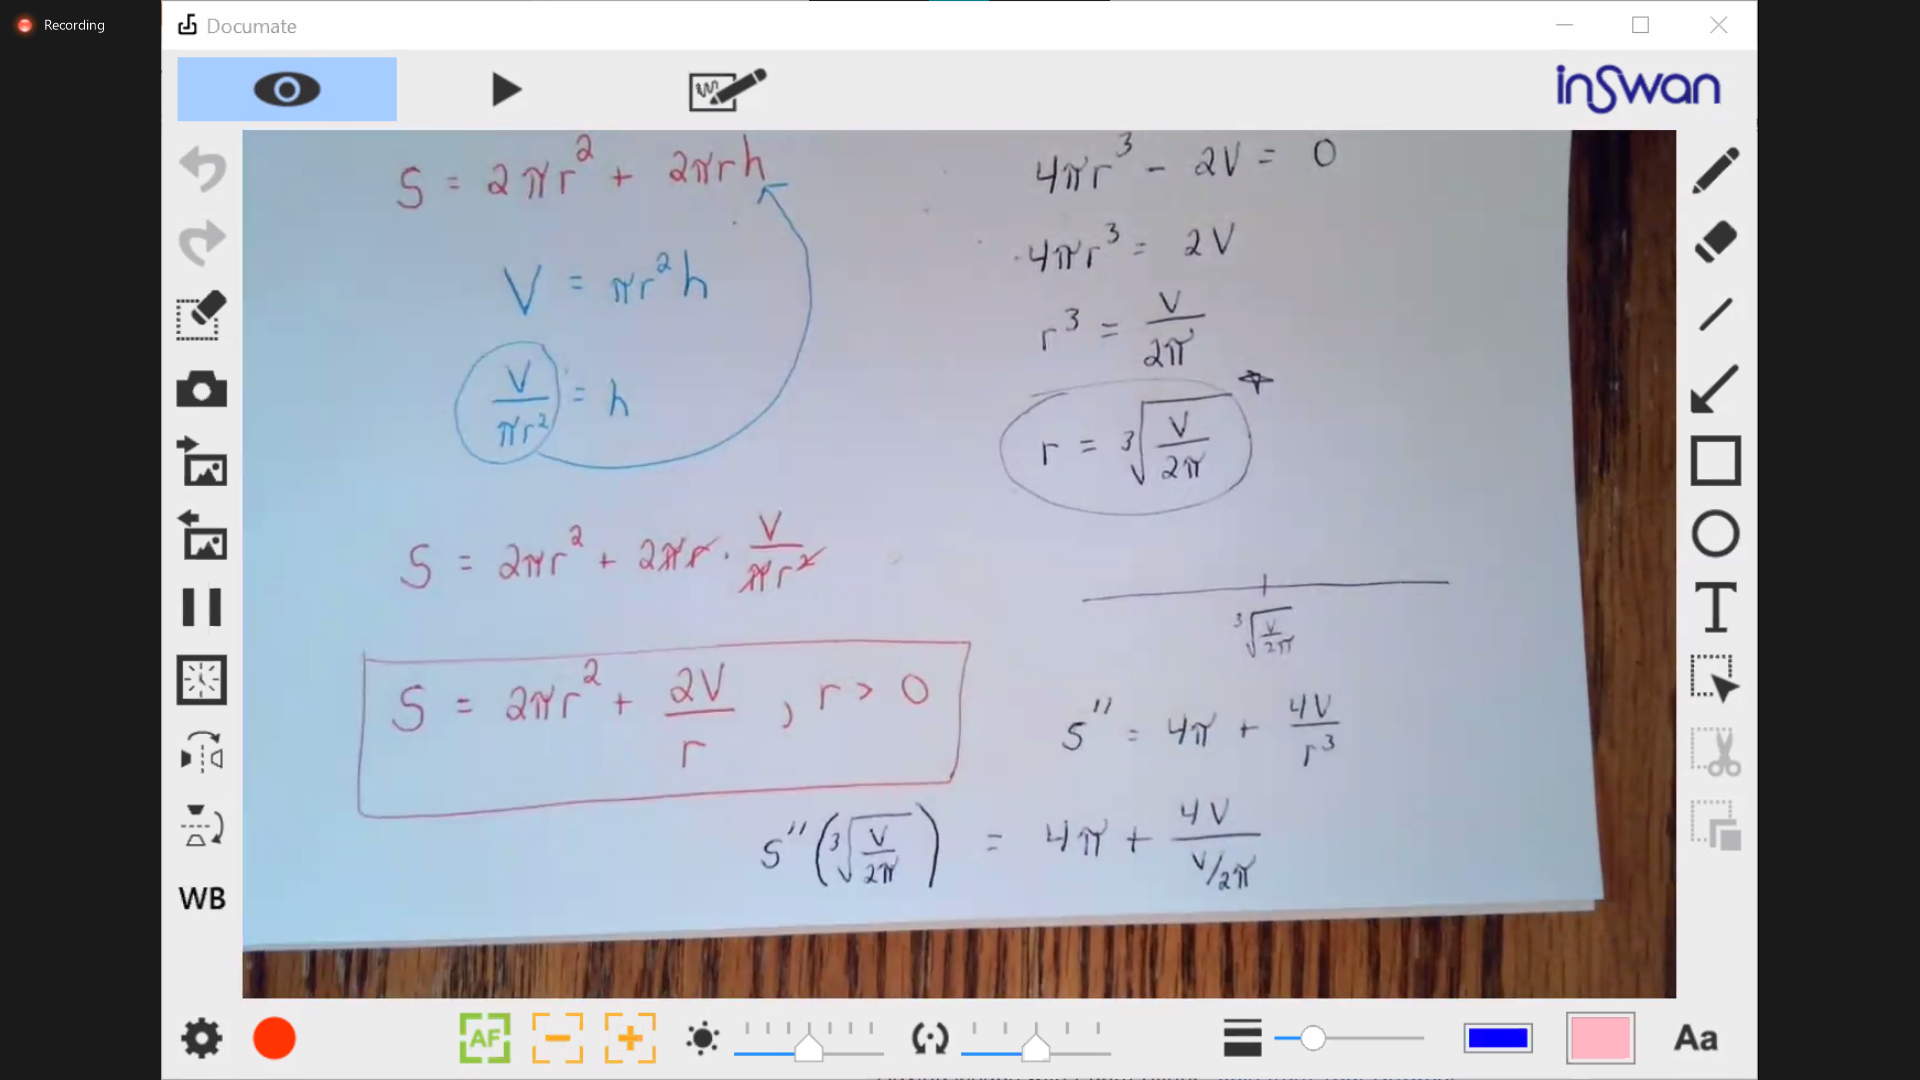 Recording
Documate
inSwan
S = 2πr² + 2πrh
V = πr²h
V/πr² = h
S = 2πr² + 2πr · V/πr²
S = 2πr² + 2V/r , r > 0
4πr³ - 2V = 0
4πr³ = 2V
r³ = V/2π
r = ³√(V/2π)
³√(V/2π)
S'' = 4π + 4V/r³
S''(³√(V/2π)) = 4π + 4V/(V/2π)
WB
T
AF
Aa